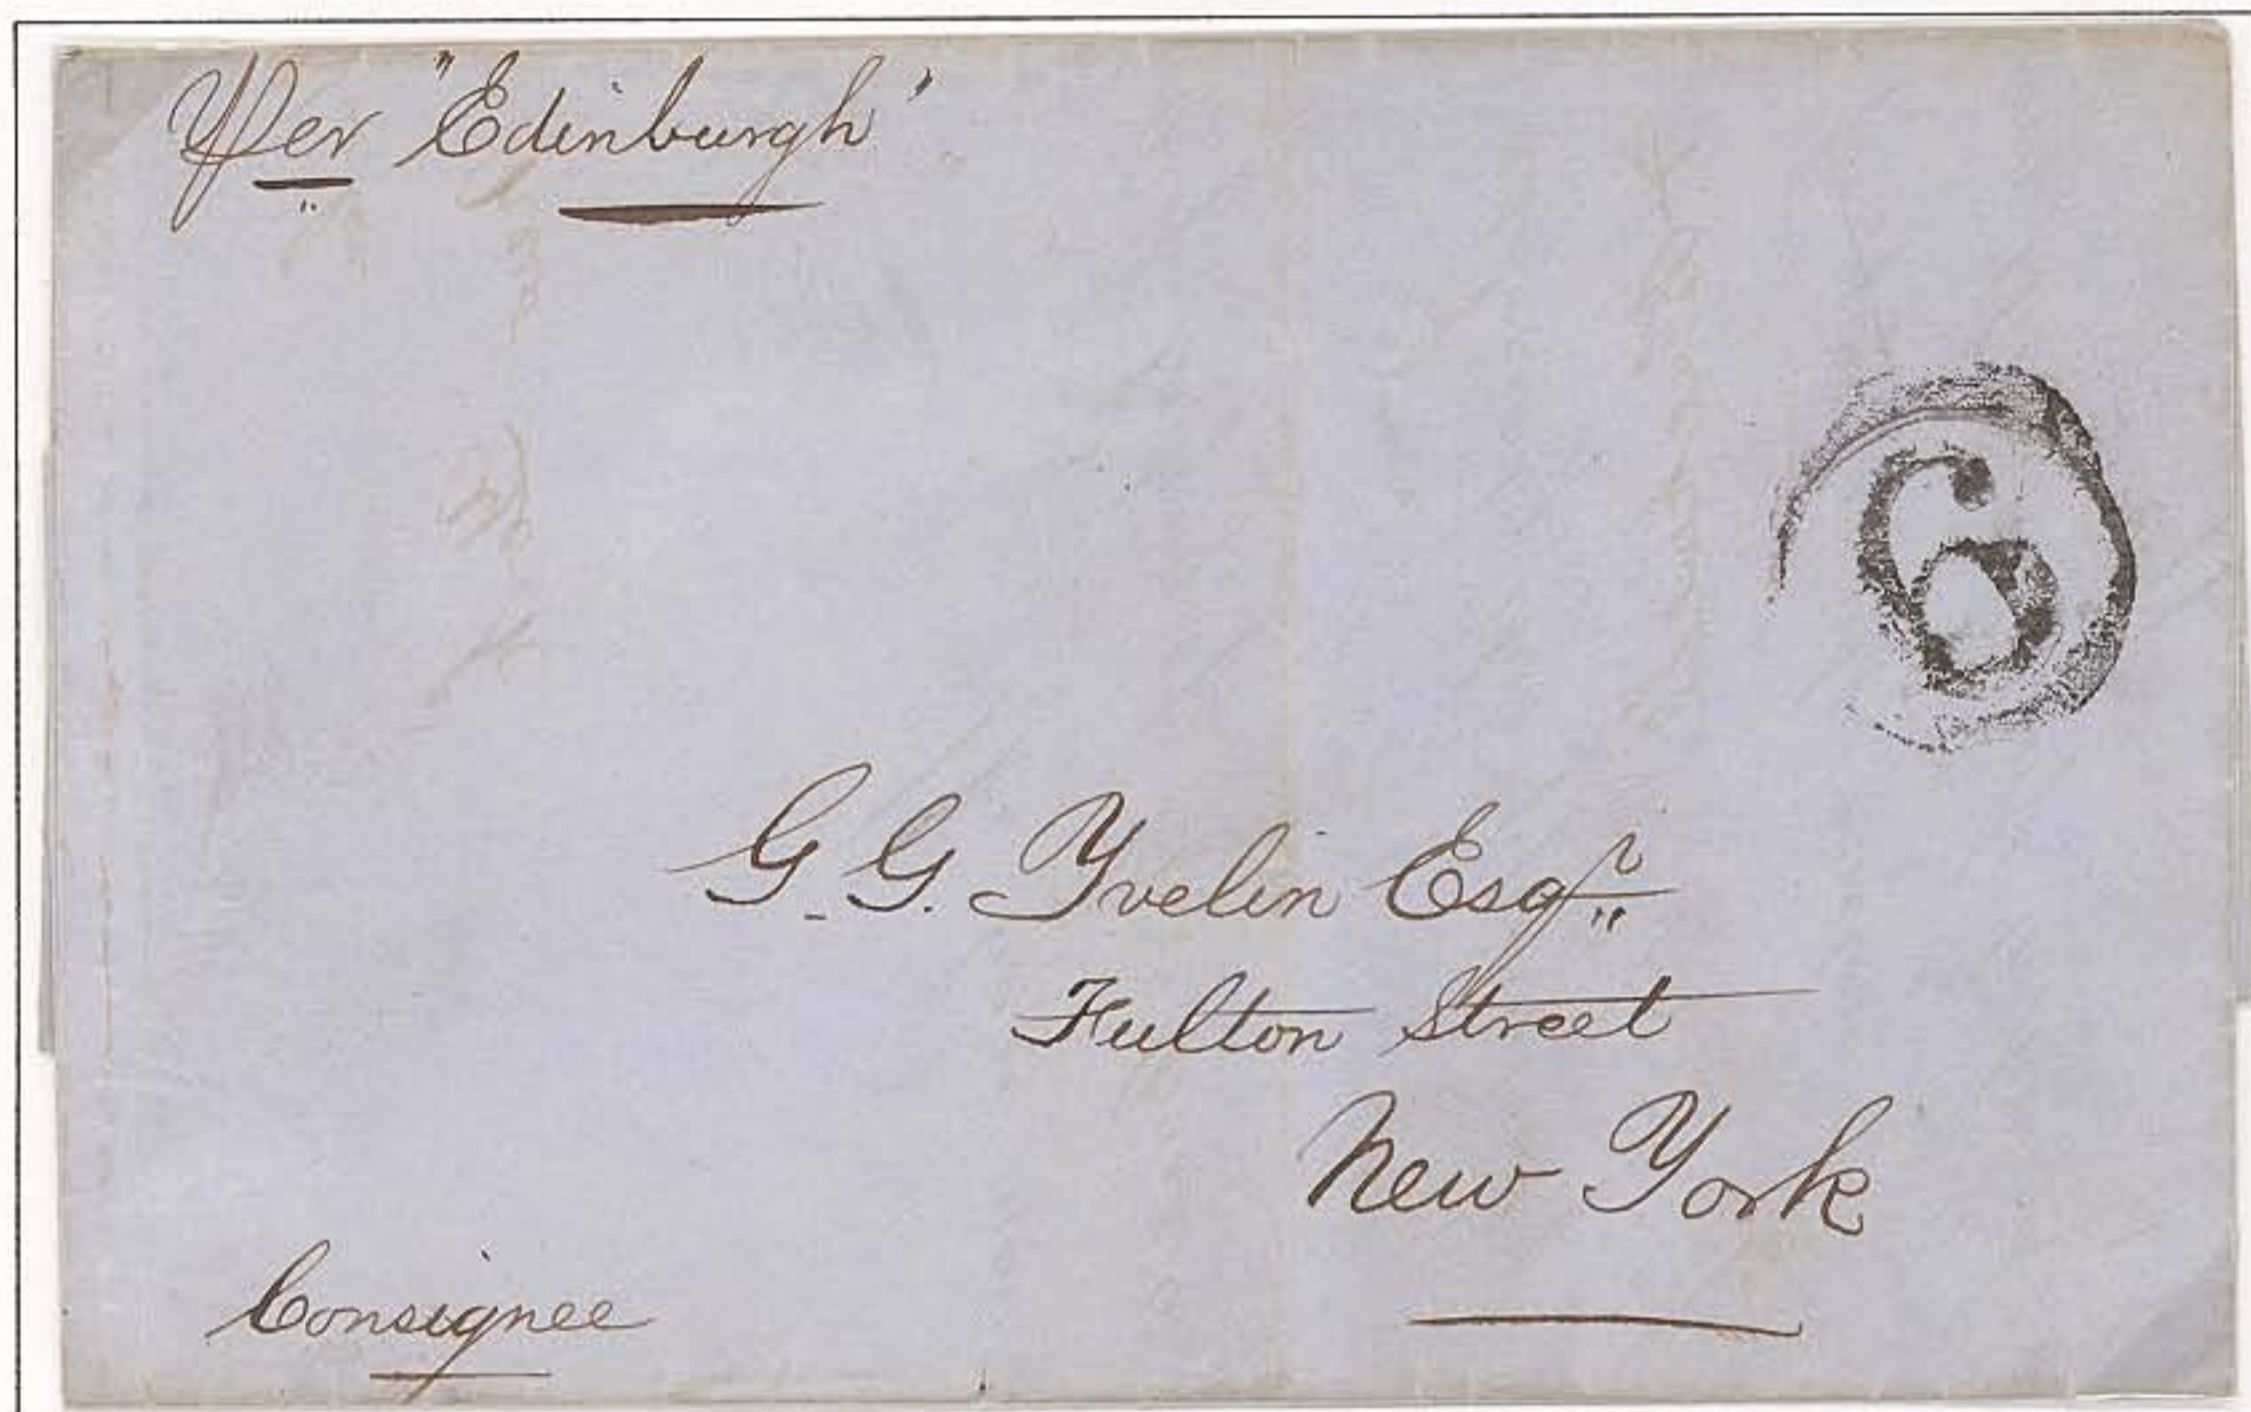 Per "Edinburgh"
6
G. G. Yvelin Esqr
Fulton Street
New York
Consignee